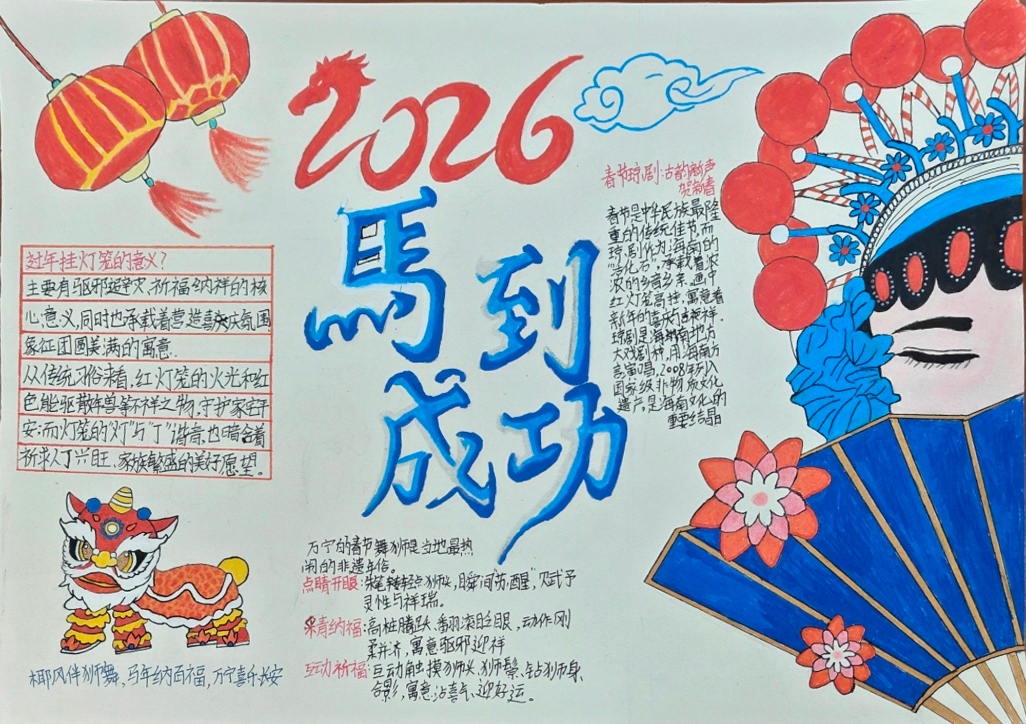 2026
馬到
成功
过年挂灯笼的意义?
主要有驱邪避灾、祈福纳祥的核
心意义,同时也承载着营造喜庆氛围
象征团圆美满的寓意.
从传统习俗来看,红灯笼的火光和红
色能驱散年兽等不祥之物,守护家宅平
安;而灯笼的"灯"与"丁"谐音,也暗含着
祈求人丁兴旺、家族繁盛的美好愿望。
春节琼剧:古韵新声
贺新春
春节是中华民族最隆
重的传统佳节,而
琼剧作为海南的
"活化石",承载着浓
浓的乡音乡亲.画中
红灯笼高挂,寓意着
新年的喜庆与吉祥.
琼剧是海南地方
大戏剧种,用海南方
言演唱,2008年列入
国家级非物质文化
遗产,是海南文化的
重要结晶
万宁的春节舞狮是当地最热
闹的非遗年俗。
点睛开眼:朱笔轻点狮头,瞬间"苏醒",赋予
灵性与祥瑞。
采青纳福:高桩腾跃、翻滚眨眼,动作刚
柔并济,寓意驱邪迎祥
互动祈福:互动触摸狮头、狮鬃、钻狮身、
合影,寓意沾喜气、迎好运。
椰风伴狮舞,马年纳百福,万宁喜乐长安